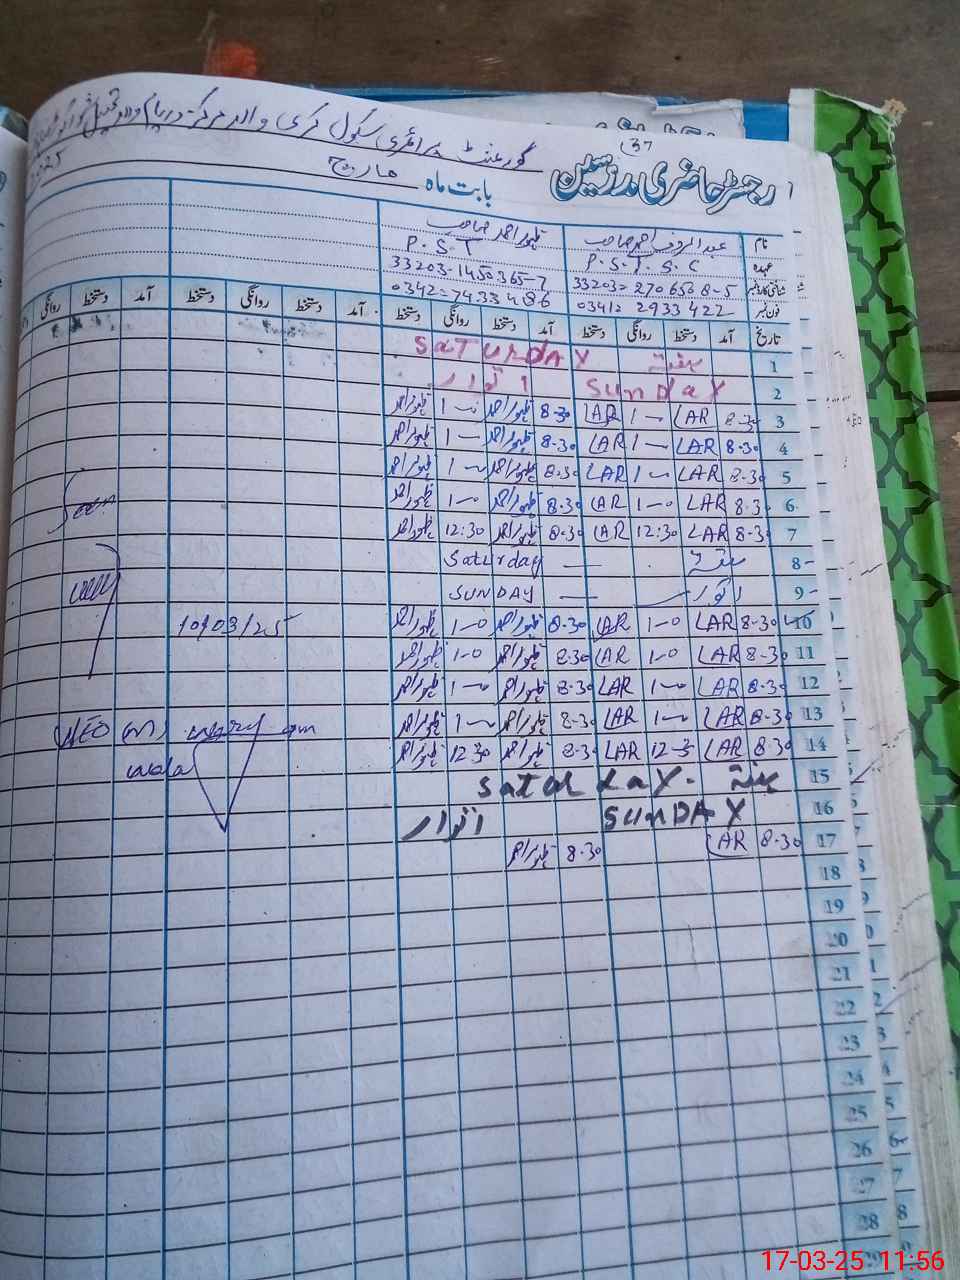 37
گورنمنٹ پرائمری سکول
رجسٹر حاضری مدرسین بابت ماہ مارچ 2025
نام عبدالرؤف احمد صاحب ظہور احمد صاحب
عہدہ P.S.T.S.C P.S.T
شناختی کارڈ نمبر 33203-2706508-5 33203-1450365-7
فون نمبر 03412 2933422 0342-7433486
تاریخ آمد دستخط روانگی دستخط آمد دستخط روانگی دستخط آمد دستخط روانگی دستخط آمد دستخط روانگی
1 ہفتہ SATURDAY
2 SUNDAY اتوار
3 8-30 LAR 1-0 LAR 8-30 ظہور احمد 1-0 ظہور احمد
4 8-30 LAR 1-0 LAR 8-30 ظہور احمد 1-0 ظہور احمد
5 8-30 LAR 1-0 LAR 8-30 ظہور احمد 1-0 ظہور احمد
6 8-30 LAR 1-0 LAR 8-30 ظہور احمد 1-0 ظہور احمد
7 8-30 LAR 12:30 LAR 8-30 ظہور احمد 12:30 ظہور احمد
8 ہفتہ — Saturday
9 اتوار — SUNDAY
10 8-30 LAR 1-0 LAR 8-30 ظہور احمد 1-0 ظہور احمد 10/03/25
11 8-30 LAR 1-0 LAR 8-30 ظہور احمد 1-0 ظہور احمد
12 8-30 LAR 1-0 LAR 8-30 ظہور احمد 1-0 ظہور احمد
13 8-30 LAR 1-0 LAR 8-30 ظہور احمد 1-0 ظہور احمد
AEO (M)
14 8-30 LAR 12-30 LAR 8-30 ظہور احمد 12-30 ظہور احمد
15 ہفتہ - Saturday
16 SUNDAY اتوار
17 8-30 LAR 8-30 ظہور احمد
18
19
20
21
22
23
24
25
26
27
28
29
17-03-25 11:56